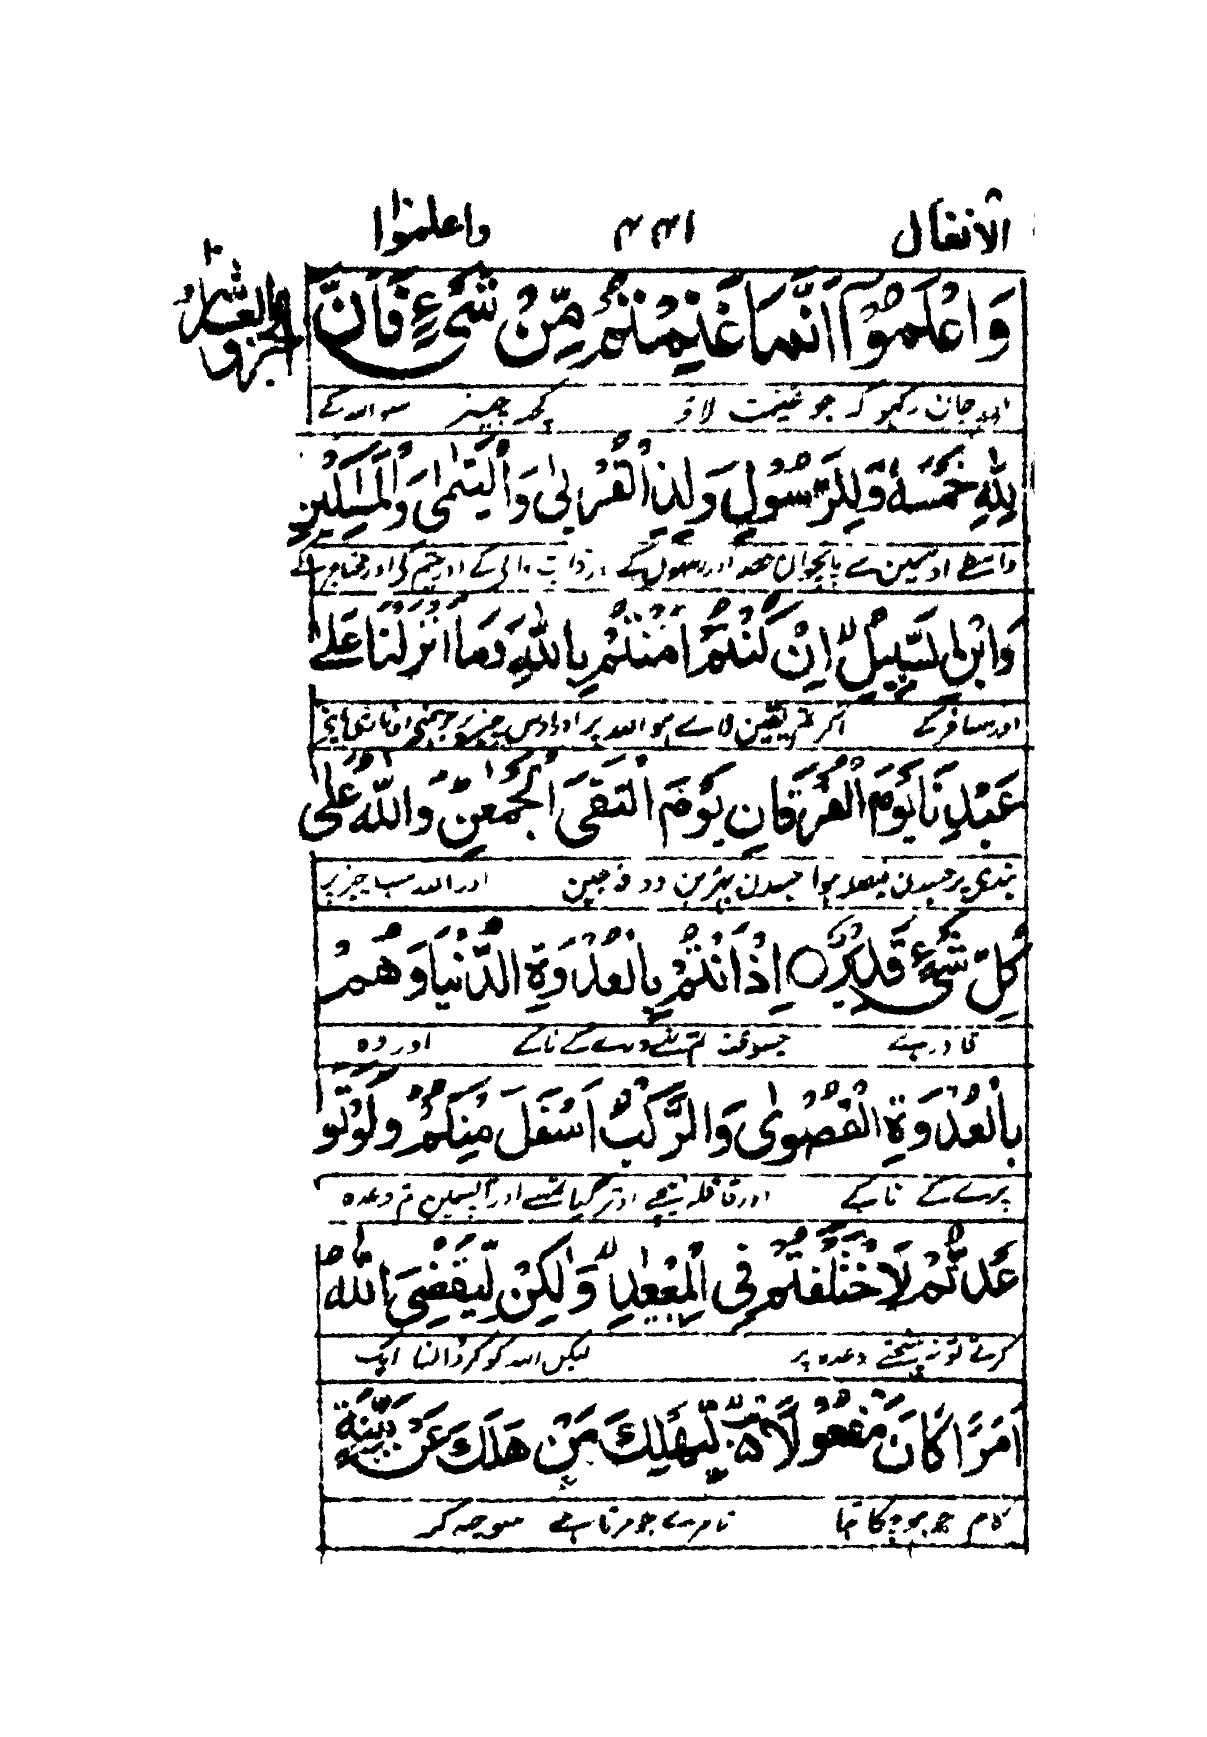 الانفال ۸ واعلموا
الجزو العاشر
وَاعْلَمُوْٓا اَنَّمَا غَنِمْتُمْ مِّنْ شَیْءٍ فَاَنَّ
اور جان رکھو کہ جو غنیمت لاؤ کچھ چیز سو اللہ کے
لِلّٰهِ خُمُسَهٗ وَلِلرَّسُوْلِ وَلِذِی الْقُرْبٰی وَالْیَتٰمٰی وَالْمَسٰكِیْنِ
واسطے اوسمین سے پانچوان حصہ اور رسول کے اور قرابت والی کے اور یتیم کی اور محتاج کے
وَابْنِ السَّبِیْلِ ۙ اِنْ كُنْتُمْ اٰمَنْتُمْ بِاللّٰهِ وَمَاۤ اَنْزَلْنَا عَلٰی
اور مسافر کے اگر تم یقین لائے ہو اللہ پر اور اوس چیز پر جو ہمنے اوتاری اپنی
عَبْدِنَا یَوْمَ الْفُرْقَانِ یَوْمَ الْتَقَی الْجَمْعٰنِ ؕ وَاللّٰهُ عَلٰی
بندی پر جسدن فیصلہ ہوا جسدن بھڑین دو فوجین اور اللہ سب چیز پر
كُلِّ شَیْءٍ قَدِیْرٌ ○ اِذْ اَنْتُمْ بِالْعُدْوَةِ الدُّنْیَا وَهُمْ
قادر ہے جسوقت تم تھے ورے کے ناکے اور وہ
بِالْعُدْوَةِ الْقُصْوٰی وَالرَّكْبُ اَسْفَلَ مِنْكُمْ ؕ وَلَوْ تَوَا
پرے کے ناکے اور قافلہ نیچے اوتر گیا تمسے اور آپسمین تم وعدہ
عَدْتُّمْ لَاخْتَلَفْتُمْ فِی الْمِیْعٰدِ ۙ وَلٰكِنْ لِّیَقْضِیَ اللّٰهُ
کرتے تو نہ پہنچتے وعدہ پر لیکن اللہ کو کر ڈالنا ایک
اَمْرًا كَانَ مَفْعُوْلًا ۙ۵ لِّیَهْلِكَ مَنْ هَلَكَ عَنْۢ بَیِّنَةٍ
کام جو ہو چکا تھا تا مرے جو مرتا ہے سوجھ کر